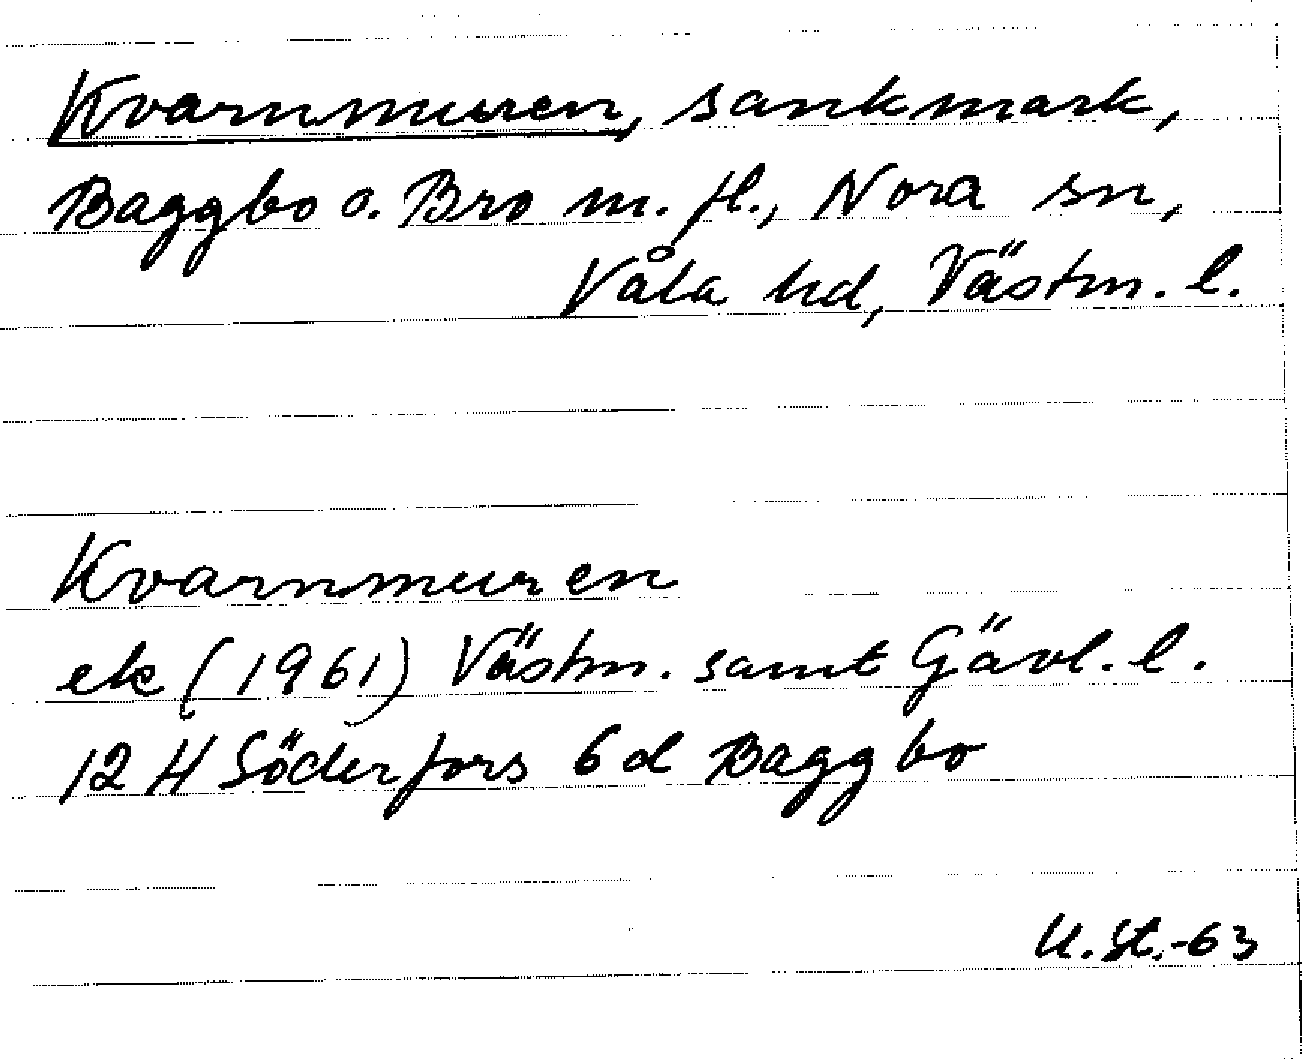 Kvarnmuren, sankmark,
Baggbo o. Bro m. fl., Nora sn,
Våla hd, Västm. l.
Kvarnmuren
ek (1961) Västm. samt Gävl. l.
12 H Söderfors 6 d Baggbo
U. St. -63